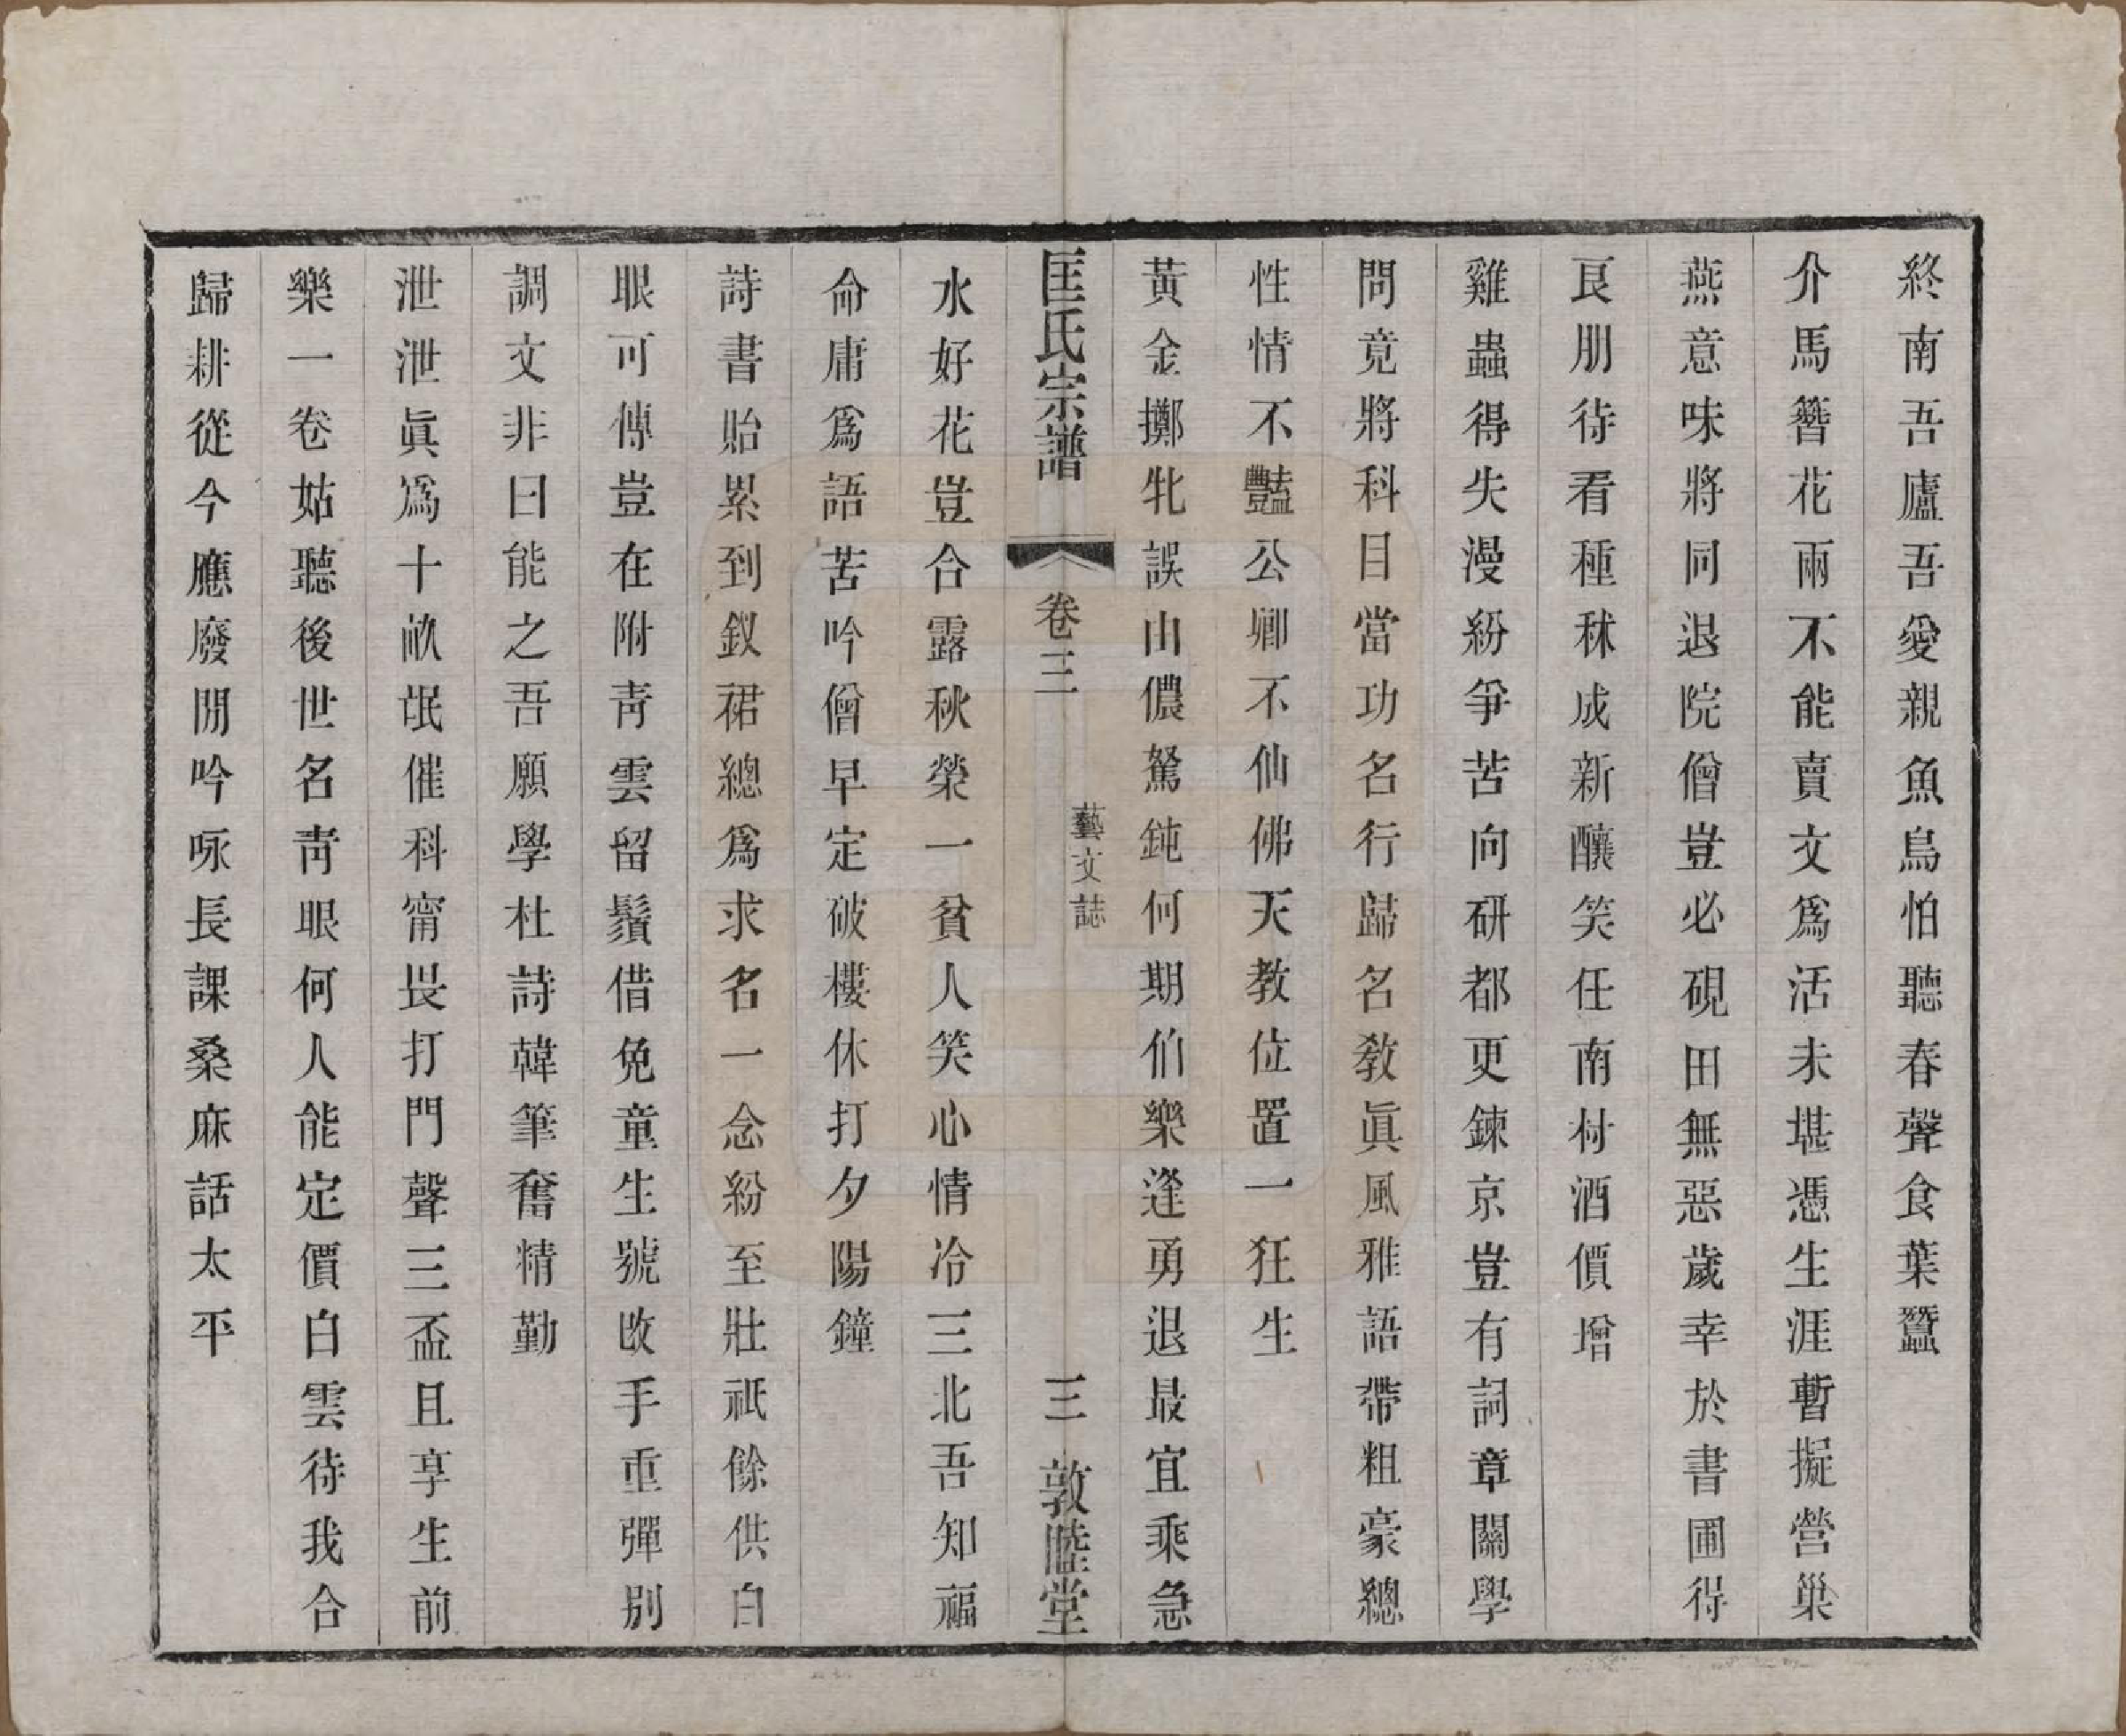 終南吾廬吾愛親魚鳥怕聽春聲食葉蠶
介馬簪花兩不能賣文爲活未堪憑生涯暫擬營巢
燕意味將同退院僧豈必硯田無惡歲幸於書圃得
良朋待看種秫成新釀笑任南村酒價增
雞蟲得失漫紛爭苦向硏都更鍊京豈有詞章關學
問竟將科目當功名行歸名敎眞風雅語帶粗豪總
性情不豔公卿不仙佛天教位置一狂生
黃金擲牝誤山儂駑鈍何期伯樂逢勇退最宜乘急
匡氏宗譜 卷三 藝文誌 三 敦睦堂
水好花豈合露秋榮一貧人笑心情冷三北吾知福
命庸爲語苦吟僧早定破樓休打夕陽鐘
詩書貽累到釵裙總爲求名一念紛至壯祇餘供白
眼可傳豈在附靑雲留鬚借免童生號改手重彈別
調文非曰能之吾願學杜詩韓筆奮精勤
泄泄眞爲十畝氓催科甯畏打門聲三盃且享生前
樂一卷姑聽後世名靑眼何人能定價白雲待我合
歸耕從今應廢閒吟咏長課桑麻話太平